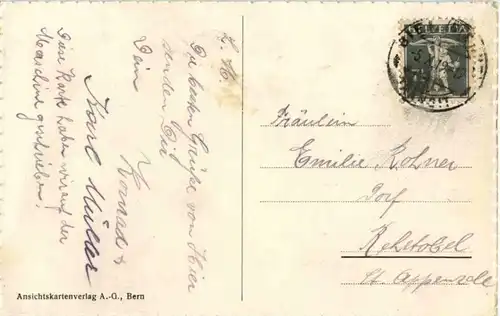 L. M.
Die besten Grüsse von Hier
senden Dir
Dein
Konrad &
Karl Müller
Diese Karte haben wir auf der
Maschine geschrieben!
Ansichtskartenverlag A.-G., Bern
HELVETIA
Fräulein
Emilie Kohner
Dorf
Rehetobel
Kt. Appenzell